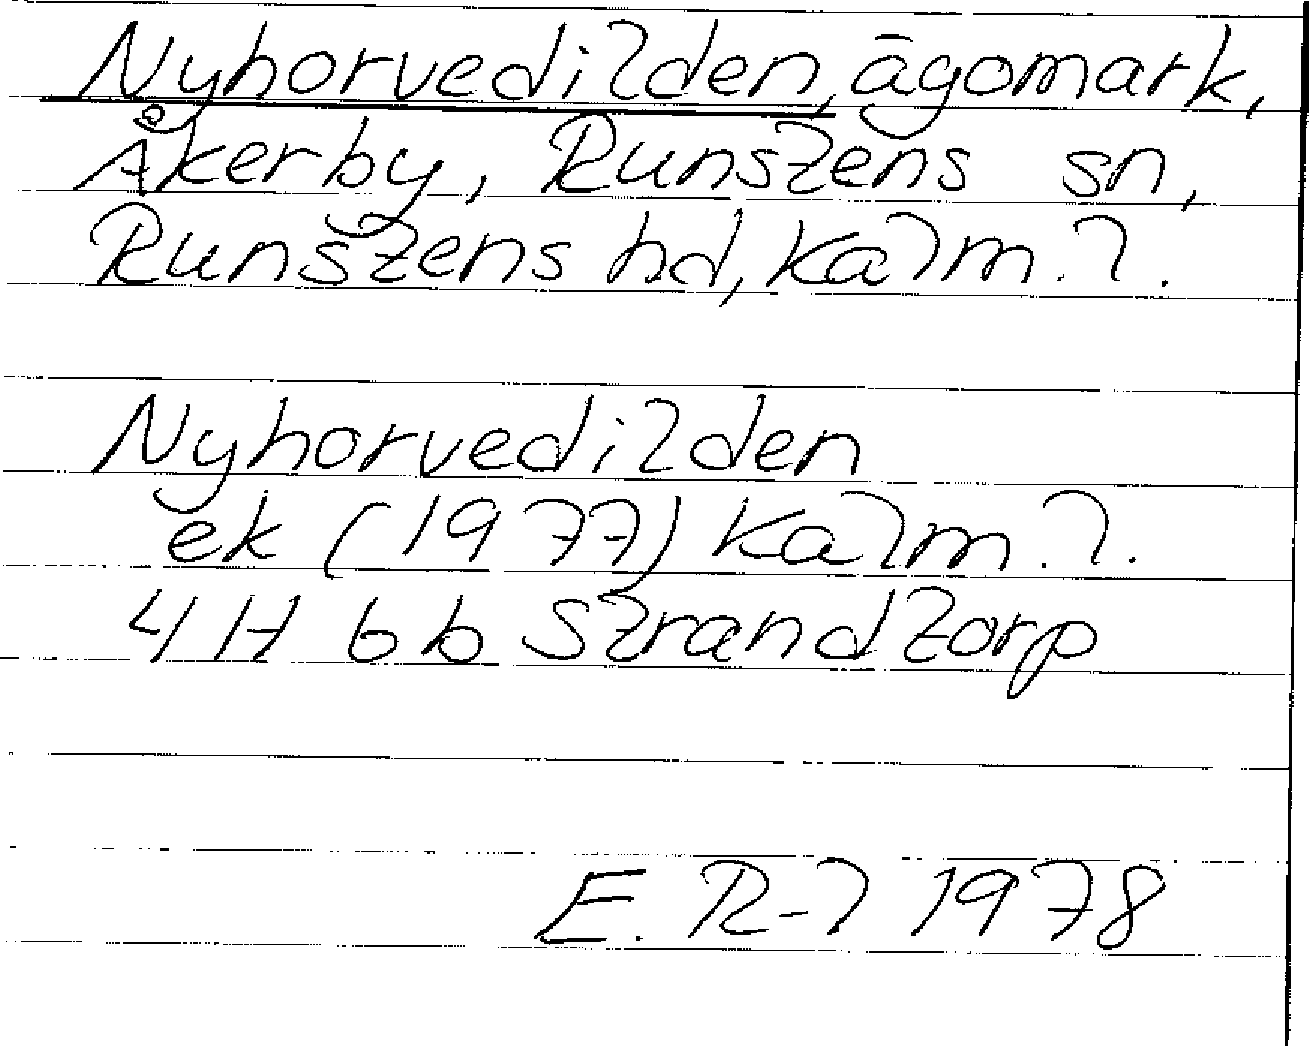 Nyhorvedilden, ägomark,
Åkerby, Runstens sn,
Runstens hd, Kalm. l.
Nyhorvedilden
ek (1977) Kalm. l.
4H 6b Strandtorp
E. R-l 1978